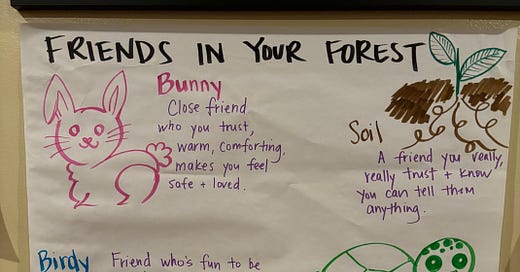 FRIENDS IN YOUR FOREST
Bunny
Close friend
who you trust,
warm, comforting,
makes you feel
safe + loved.
Soil
A friend you really,
really trust + know
you can tell them
anything.
Birdy
Friend who's fun to be